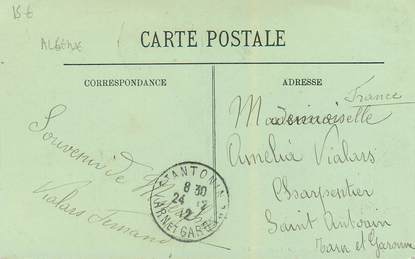 15 €
ALGERIE
CARTE POSTALE
CORRESPONDANCE
Souvenir de
Vialars Fernand
ST ANTONIN
8 30
24 - 2
12
TARN ET GARONNE
ADRESSE
France
Mademoiselle
Amélia Vialars
Charpentier
Saint Antonin
Tarn et Garonne